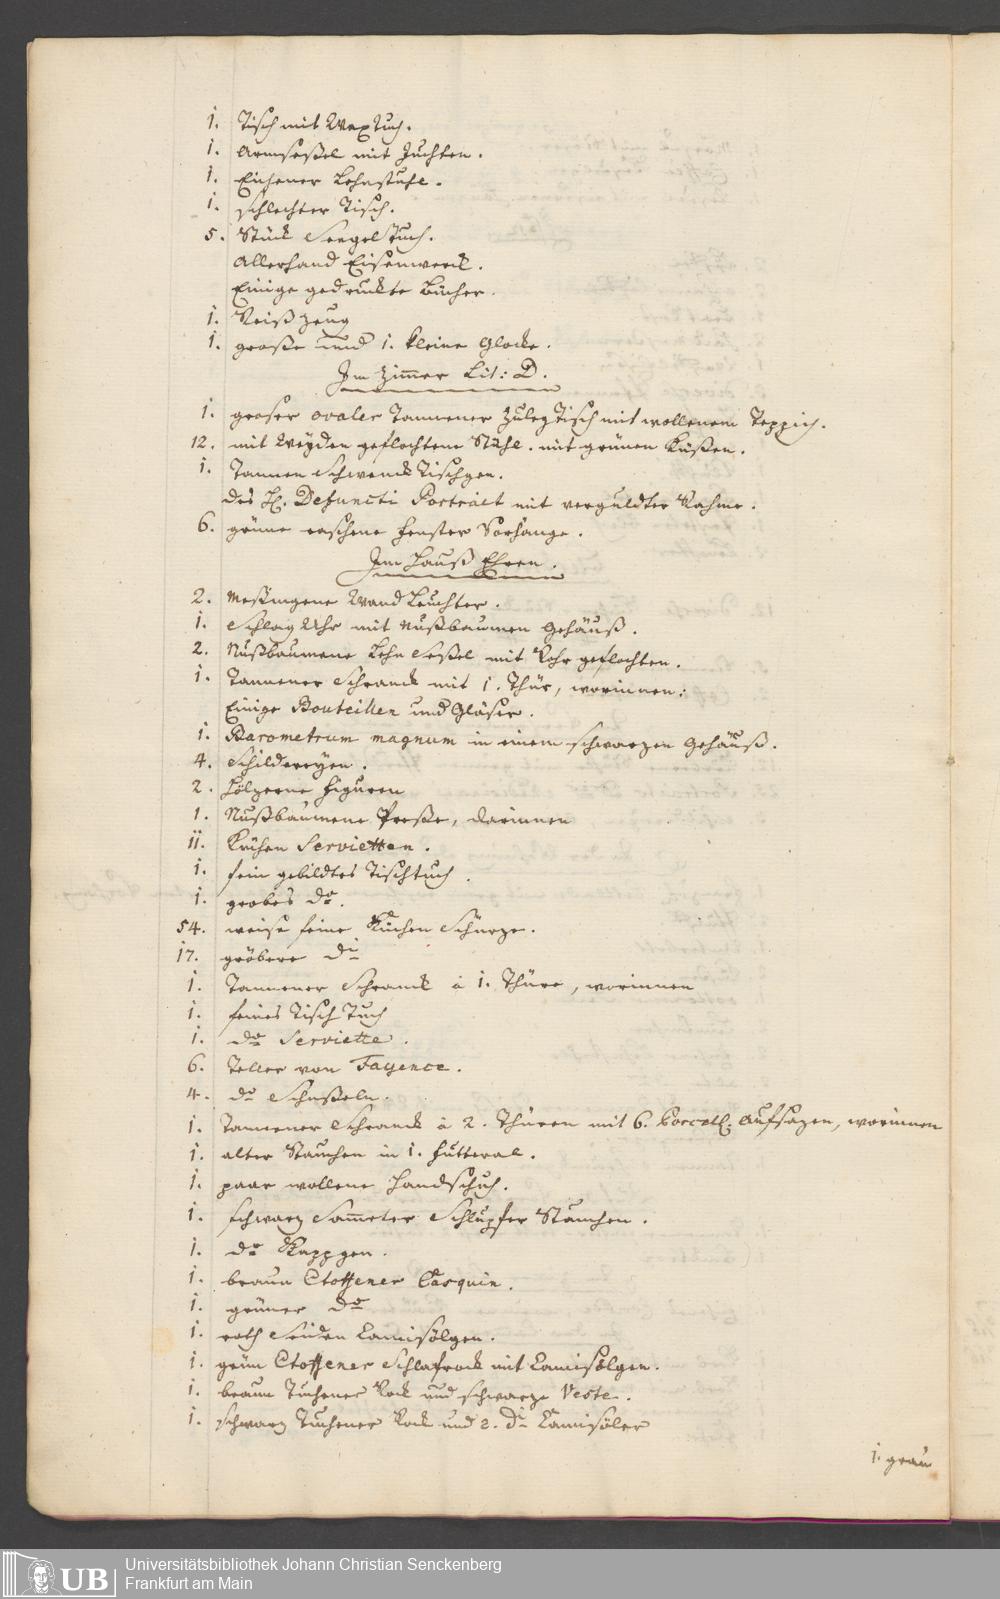 1. Tisch mit Wax Tuch.
1. Armseßel mit Juchten.
1. Eichener Lehnstuhl.
1. schlechter Tisch.
5. Stück Seegel Tuch.
Allerhand Eisenwerck.
Einige gedruckte Bücher.
1. Reiß Zeug
1. große und 1. kleine Glocke.
Im Zimmer Lit: D.
1. groser ovaler Tannener Zuleg Tisch mit wollenem Teppich.
12. mit Weyden geflochtene Stühl. mit grünen Küßen.
1. Tannen Schwenck Tischgen.
des H. Defuncti Portrait mit verguldter Rahme.
6. grüne raschene Fenster Vorhänge.
Im Hauß Ehren.
2. Meßingene Wand Leuchter.
1. Schlag Uhr mit Nußbaumen Gehäuß.
2. Nußbaumene Lehn Seßel mit Rohr geflochten.
1. Tannener Schranck mit 1. Thür, worinnen:
Einige Bouteillen und Gläser.
1. Barometrum magnum in einem schwarzen Gehäuß.
4. Schildereyen.
2. Hölzerne Figuren
1. Nußbaumene Preße, darinnen
11. Servietten.
1. fein gebildtes Tischtuch.
1. grobes do.
54. weise feine Küchen Schürze.
17. gröbere di
1. Tannener Schranck à 1. Thüre, worinnen
1. feines Tisch Tuch
1. do Serviette.
6. Teller von Fayence.
4. do Schußeln.
1. Tannener Schranck à 2. Thüren mit 6. Porcell. Aufsazen, worinnen
1. alter Stauchen in 1. Futteral.
1. paar wollene Handschuh.
1. schwarz Sam̅eter Schlupfer Stauchen.
1. do Kappgen.
1. braun Stoffener Casquin.
1. grüner do
1. roth Seiden Camisölgen.
1. grün Stoffener Schlafrock mit Camisölgen.
1. braun Tuchener Rock und schwarze Veste.
1. schwarz Tuchener Rock und 2. di Camisöler
1. grau
UB Universitätsbibliothek Johann Christian Senckenberg
Frankfurt am Main